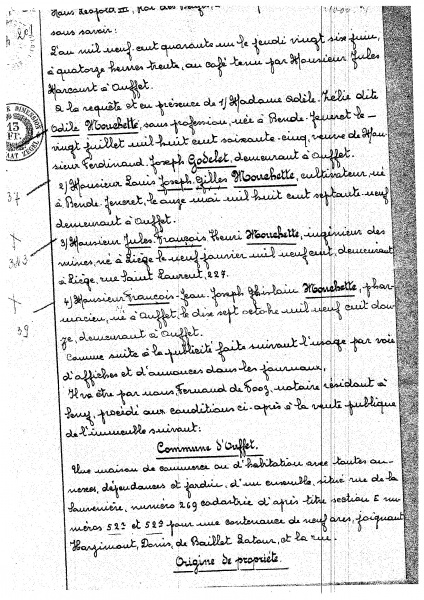 Hans Léopold III, Roi des Belges,
sous savoir:
L'an mil neuf cent quarante un le jeudi vingt six juin,
à quatorze heures trente, au café tenu par Monsieur Jules
Harcourt à Ouffet.
A la requête et en présence de 1/ Madame Odile-Zélie dite
Odile Mouchette, sans profession, née à Bende-Jeneret le
vingt juillet mil huit cent soixante-cinq, veuve de Mon-
sieur Ferdinand Joseph Godelet, demeurant à Ouffet.
2/ Monsieur Louis Joseph Gilles Mouchette, cultivateur, né
à Bende Jeneret, le onze mai mil huit cent septante neuf
demeurant à Ouffet.
3/ Monsieur Jules François Henri Mouchette, ingénieur des
mines, né à Liège le neuf janvier mil neuf cent, demeurant
à Liège, rue Saint Laurent, 227.
4/ Monsieur François-Jean Joseph Ghislain Mouchette, phar-
macien, né à Ouffet, le dix sept octobre mil neuf cent dou-
ze, demeurant à Ouffet.
Comme suite à la publicité faite suivant l'usage par voie
d'affiches et d'annonces dans les journaux,
Il va être par nous, Fernand de Tooz, notaire résidant à
, procédé aux conditions ci-après à la vente publique
de l'immeuble suivant:
Commune d'Ouffet.
Une maison de commerce ou d'habitation avec toutes an-
nexes, dépendances et jardin, d'un ensemble, situé rue de la
, numéro 269 cadastrée d'après titre section E nu-
méros 523 et 529 pour une contenance de neuf ares, joignant
Harzimont, Donis, de Baillet Latour, et la rue.
Origine de propriété.
201
13
FR.
37
39